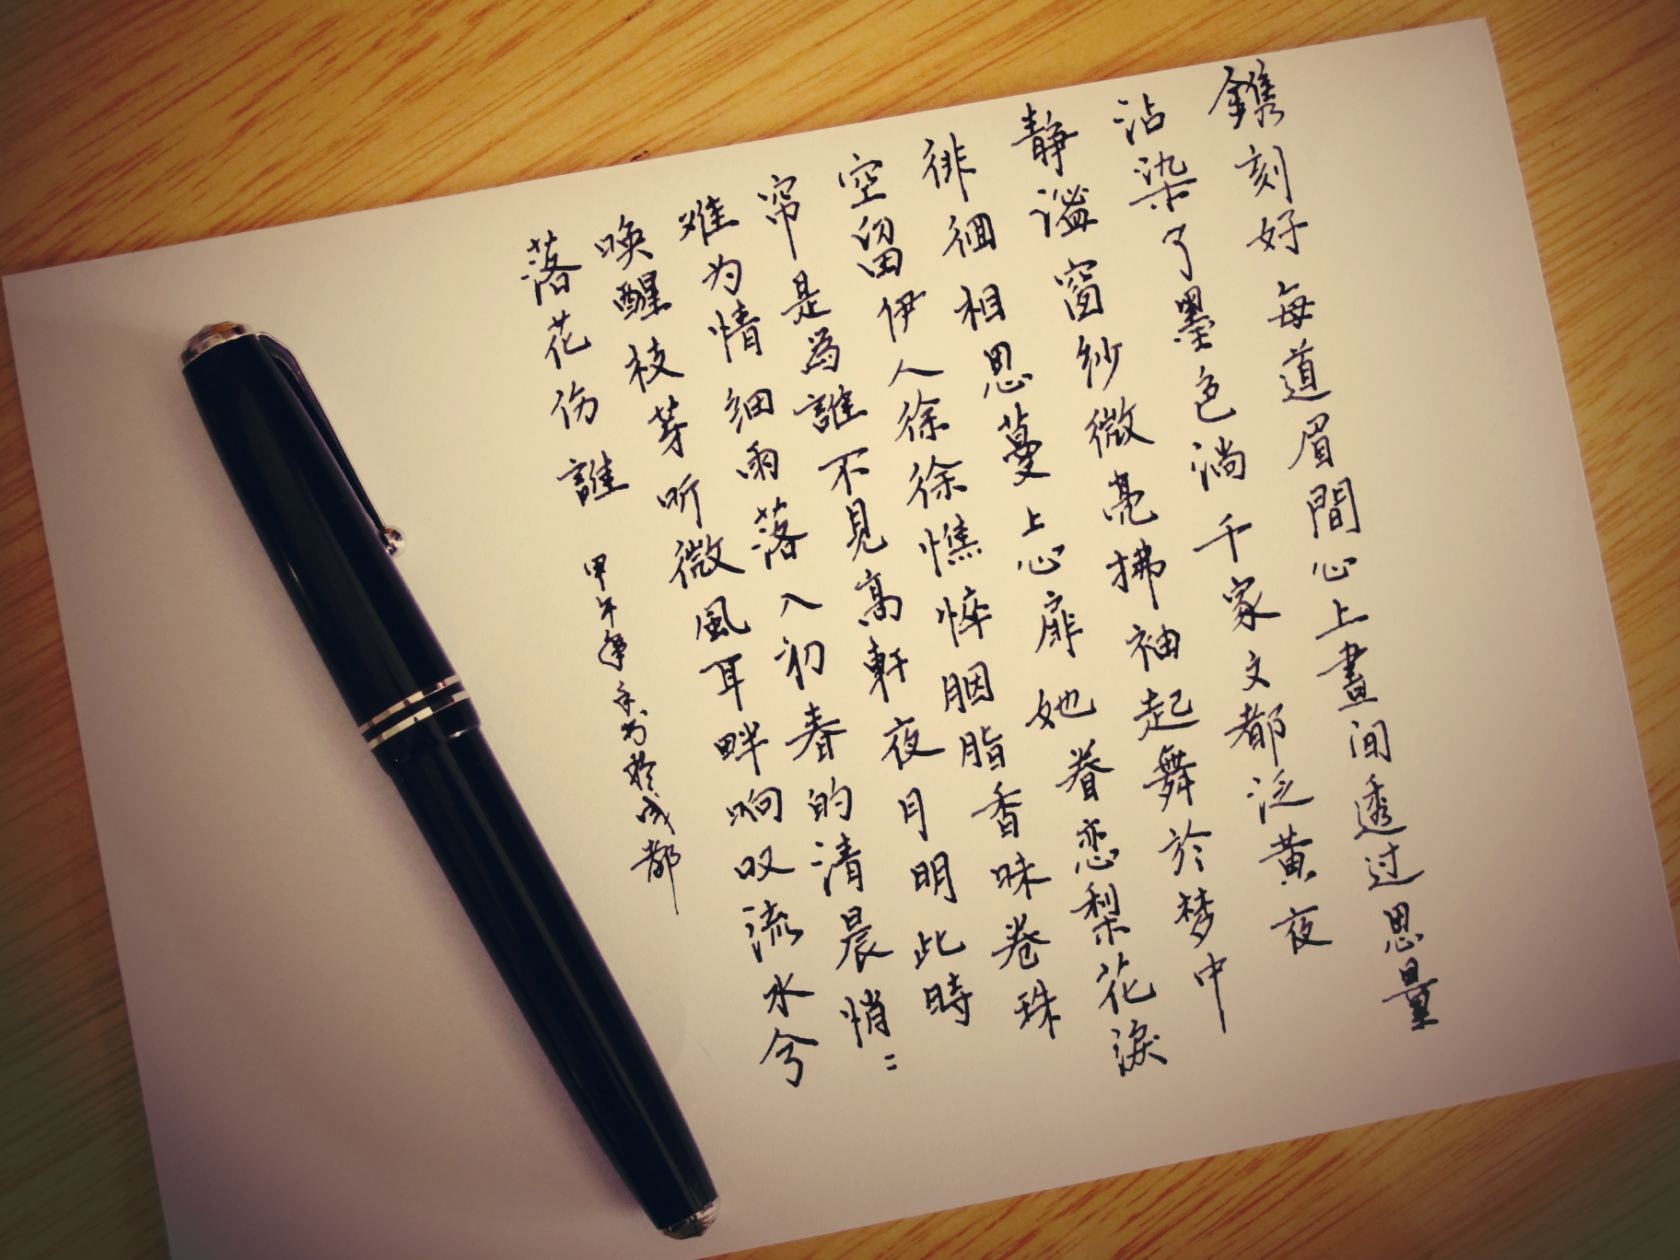 鐫刻好每道眉間心上畫间透过思量
沾染了墨色淌千家文都泛黃夜
静谧窗纱微亮拂袖起舞於梦中
徘徊相思蔓上心扉她眷恋梨花淚
空留伊人徐徐憔悴胭脂香味卷珠
帘是為誰不見高軒夜月明此時
难为情细雨落入初春的清晨悄：
唤醒枝芽听微風耳畔响叹流水兮
落花伤誰
甲午年 书於成都